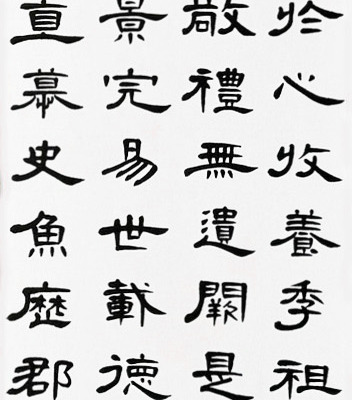 於心收養季祖
敬禮無遺闕是
景完易世載德
直慕史魚歷郡